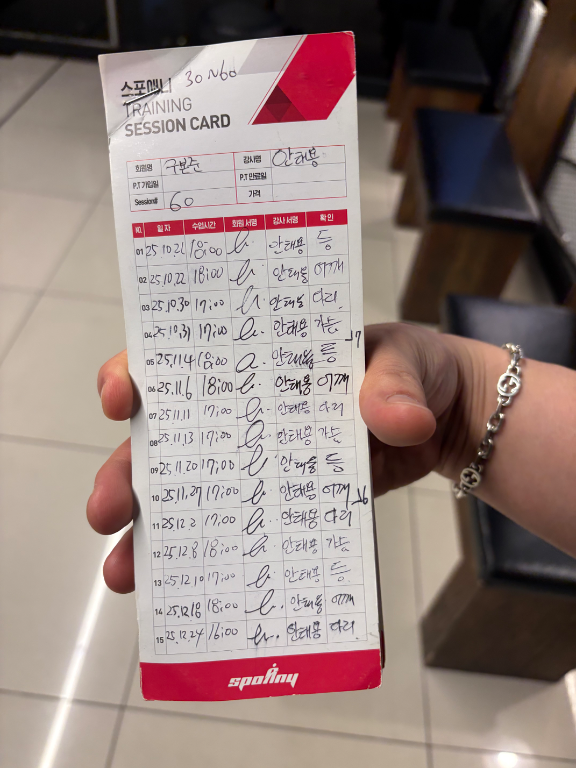 스포애니 30~60
TRAINING
SESSION CARD
회원명 구본준 강사명 안태용
P.T 가입일 P.T 만료일
Session# 60 가격
NO. 일 자 수업시간 회원 서명 강사 서명 확 인
01 25.10.21 18:00 안태용 등
02 25.10.22 18:00 안태용 어깨
03 25.10.30 17:00 안태용 다리
04 25.10.31 17:00 안태용 가슴
05 25.11.4 18:00 안태용 등 →7
06 25.11.6 18:00 안태용 어깨
07 25.11.11 17:00 안태용 다리
08 25.11.13 17:00 안태용 가슴
09 25.11.20 17:00 안태용 등
10 25.11.27 17:00 안태용 어깨 →6
11 25.12.2 17:00 안태용 다리
12 25.12.8 18:00 안태용 가슴
13 25.12.10 17:00 안태용 등
14 25.12.18 18:00 안태용 어깨
15 25.12.24 16:00 안태용 다리
spoany